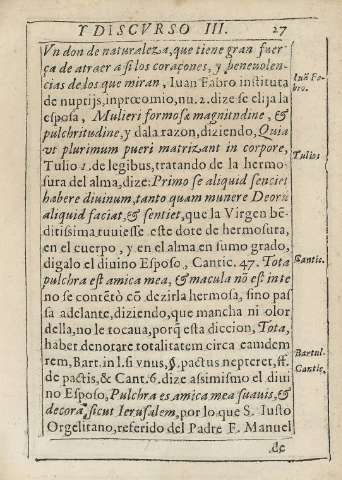 Y DISCVRSO III. 27
Vn don de naturaleza, que tiene gran fuer
ça de atraer a si los coraçones, y beneuolen-
cias de los que miran, Iuan Fabro instituta
de nuptijs, inprœomio, nu. 2. dize se elija la
esposa, Mulieri formosæ magnitudine, &
pulchritudine, y da la razon, diziendo, Quia
vt plurimum pueri matrizant in corpore,
Tulio 1. de legibus, tratando de la hermo-
sura del alma, dize: Primo se aliquid senciet
habere diuinum, tanto quam munere Deorũ
aliquid faciat, & sentiet, que la Virgen bẽ-
ditissima tuuiesse este dote de hermosura,
en el cuerpo, y en el alma en sumo grado,
digalo el diuino Esposo, Cantic. 47. Tota
pulchra est amica mea, & macula nõ est inte
no se contẽtò cõ dezirla hermosa, sino pas
sa adelante, diziendo, que mancha ni olor
della, no le tocaua, porq̃ esta diccion, Tota,
haber denotare totalitatem circa eamdem
rem, Bart. in l. si vnus, §. pactus nepteret, ff.
de pactis, & Cant. 6. dize assimismo el diui
no Esposo, Pulchra es amica mea suauis, &
decora sicut Ierusalem, por lo que S. Iusto
Orgelitano, referido del Padre F. Manuel
de
Iuã Fa-
bro.
Tulio:
Cantic.
Bartul.
Cantic.